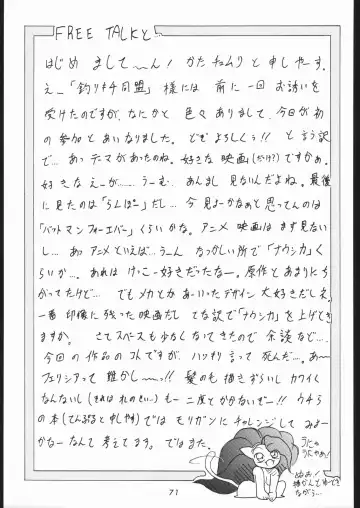 FREE TALKと…
はじめ まして〜ん! かたチュムリ と申しやーす。
えー「釣りキチ同盟」様には 前に一回お誘いを
受けたのですが、なにかと 色々 ありまして、今回が初
の参加と あいなりました。どぞ よろしくぅ!! と言う訳
で…あっテーマがあったのね。好きな映画(だけ?)ですかぁ。
好きなえーが……うーむ、あんまし見ないんだよね。最後
に見たのは「らんぼー」だし…今見よーかなぁと思ってんのは
「バットマンフォーエバー」くらいかな。アニメ映画はまず見ない
し…あっ アニメといえば…うーん なつかしい所で「ナウシカ」く
らいか…。あれは けっこー好きだったなー。原作とあまりにち
がってたけど… でもメカとか あーいったデザイン大好きだしネ。
一番 印像に残った映画だし てな訳で「ナウシカ」を上げとき
ますか。 さてスペースも少なくなてきたので 余談など…。
今回の作品のコトですが、ハッキリ言って 死んだ…。あ〜
フェリシアって 難かし〜っ!! 髪のも描きずらいし カワイく
なんないし(それは れのせい…) もー 二度とかかないぞー!! ウチら
の本(てんぷると申しやす)では モリガンにチャレンジして みよー
かなーなんて 考えてます。ではまた。
うにゃ
うにゃゃ!
ぬぉ!
ながら…
71